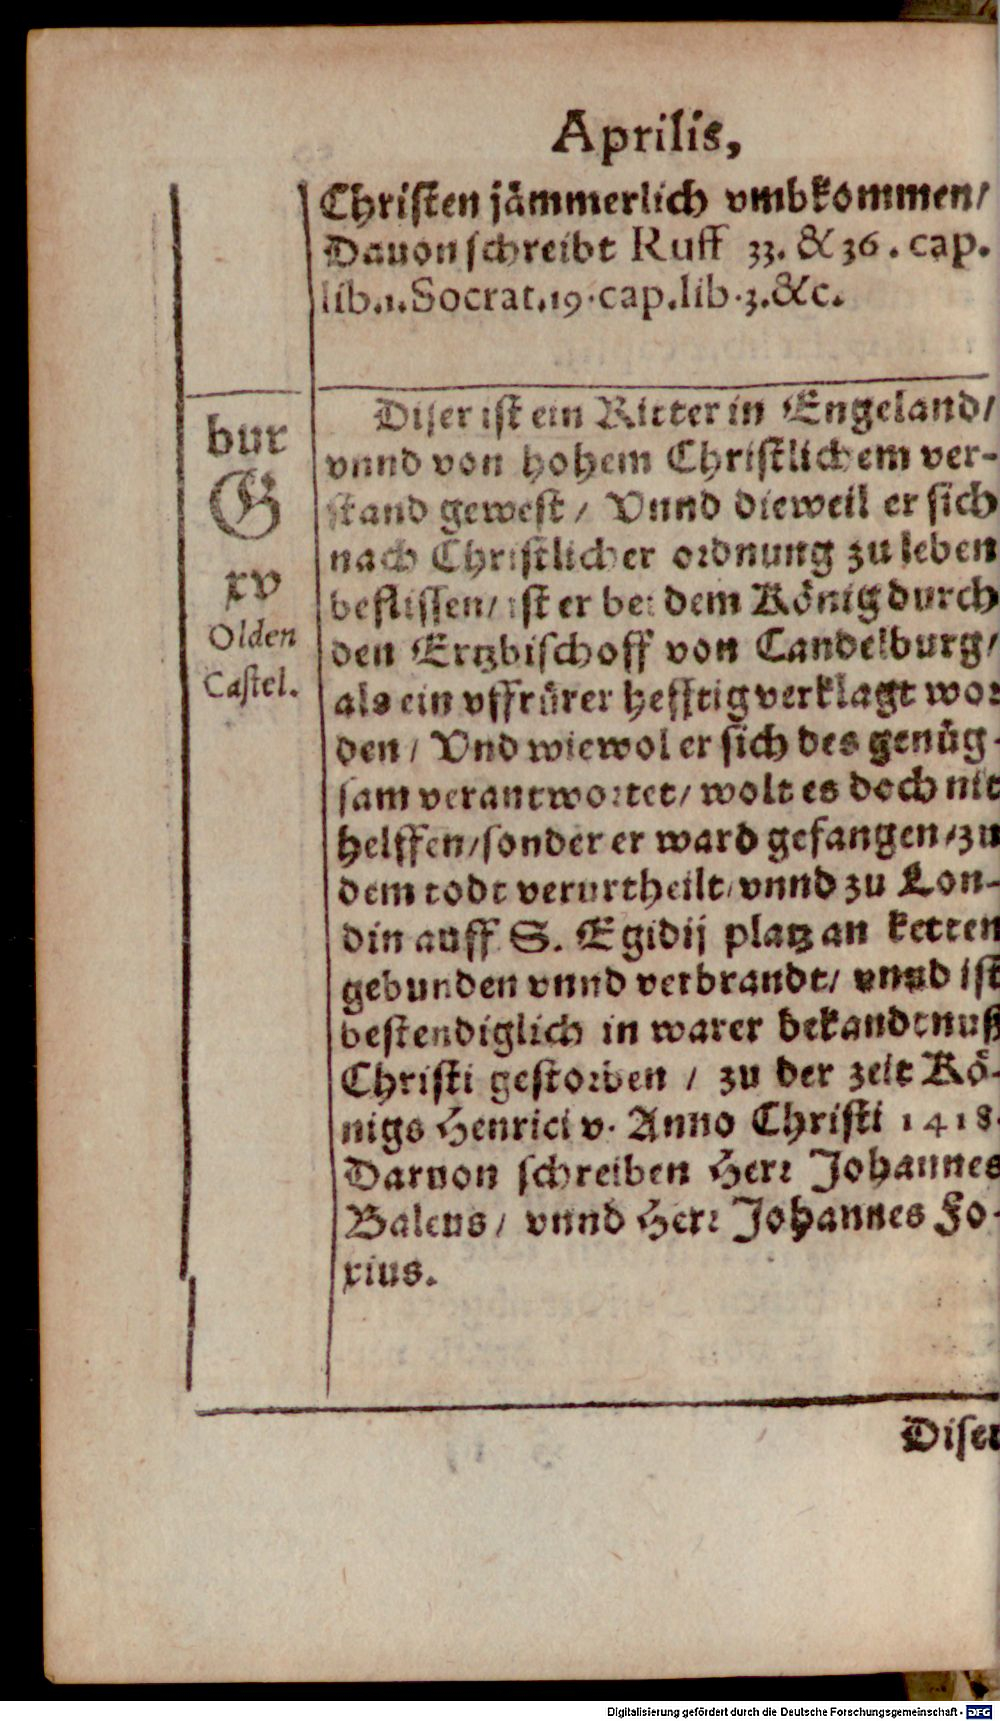 Aprilis,
Christen jämmerlich vmbkommen/
Dauon schreibt Ruff 33. & 36. cap.
lib.1. Socrat.19.cap.lib.3.&c.
bur
G
xv
Olden
Castel.
Diser ist ein Ritter in Engeland/
vnnd von hohem Christlichem ver-
stand gewest / Vnnd dieweil er sich
nach Christlicher ordnung zu leben
beflissen/ ist er bei dem König durch
den Ertzbischoff von Candelburg/
als ein vffrürer hefftig verklagt wor
den / Vnd wiewol er sich des genüg-
sam verantwortet/ wolt es doch nit
helffen/sonder er ward gefangen/zu
dem todt verurtheilt/ vnnd zu Lon-
din auff S. Egidij platz an ketten
gebunden vnnd verbrandt/ vnnd ist
bestendiglich in warer bekandtnuß
Christi gestorben / zu der zeit Kö-
nigs Henrici v. Anno Christi 1418.
Daruon schreiben Herr Johannes
Baleus / vnnd Herr Johannes Fo-
xius.
Diser
Digitalisierung gefördert durch die Deutsche Forschungsgemeinschaft - DFG